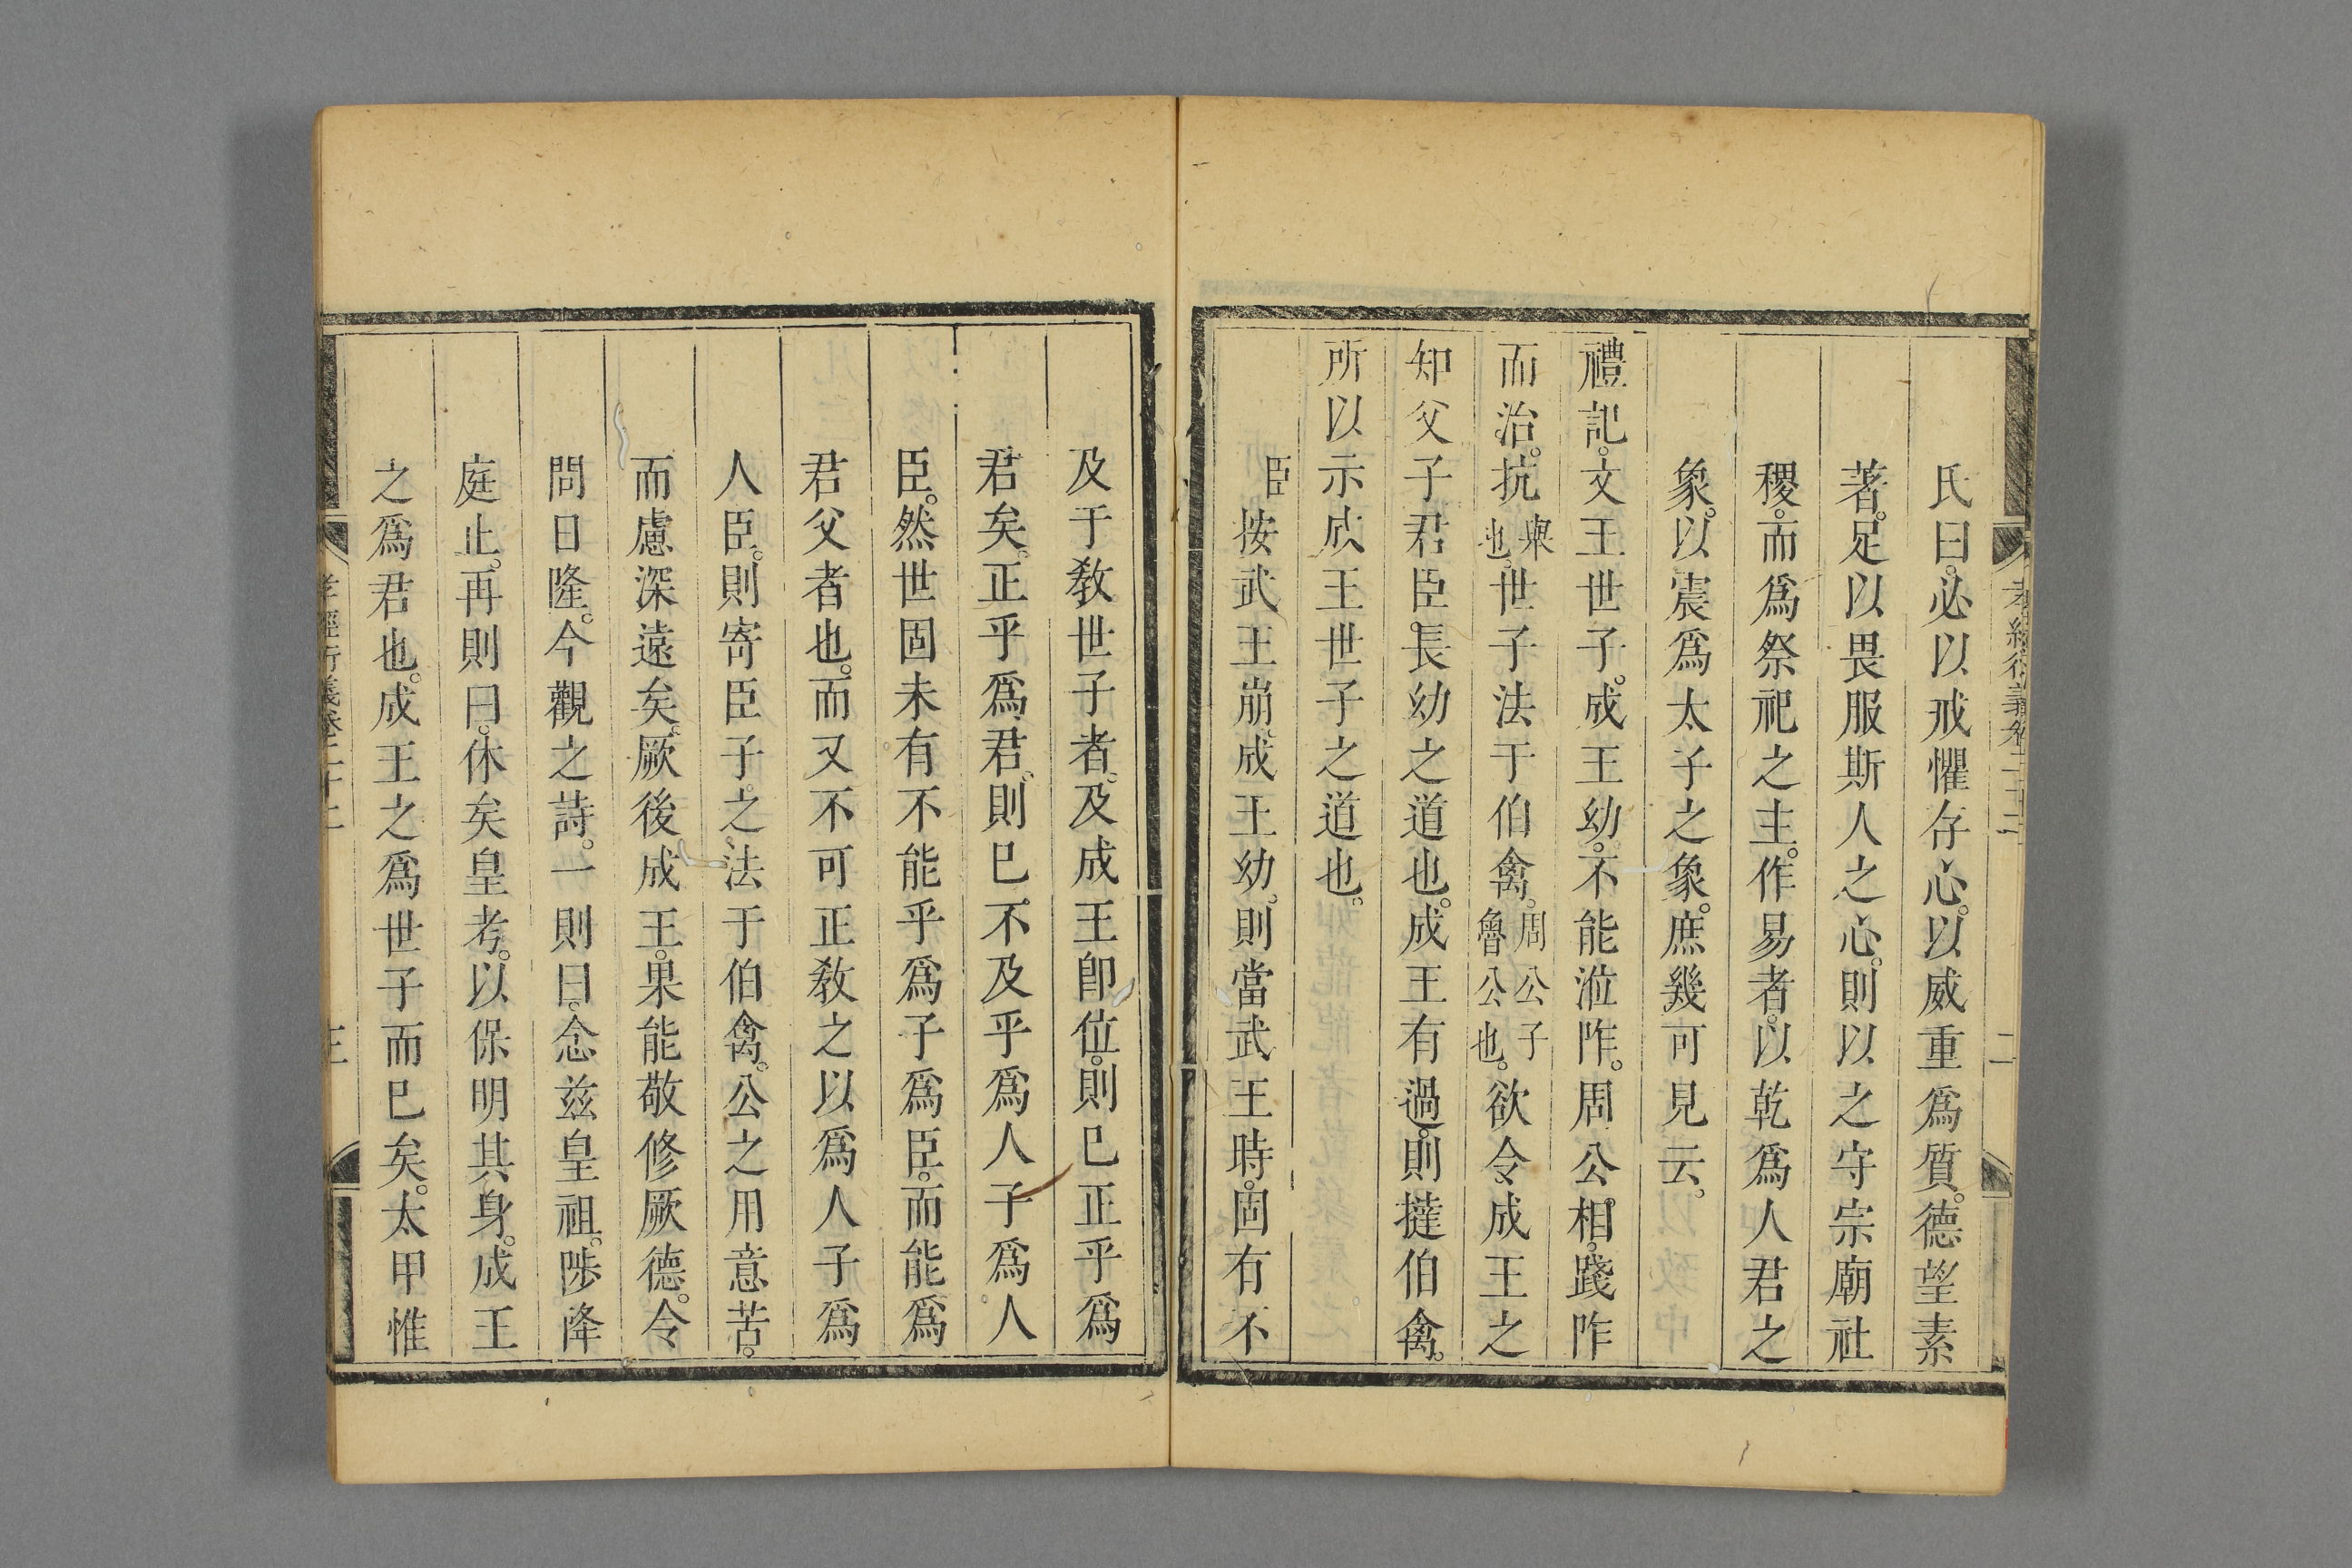 氏曰。必以戒懼存心。以威重爲質。德望素
著。足以畏服斯人之心。則以之守宗廟社
稷。而爲祭祀之主。作易者。以乾爲人君之
象。以震爲太子之象。庶幾可見云。
禮記。文王世子。成王幼。不能涖阼。周公相。踐阼
而治。抗舉也。世子法于伯禽。周公子魯公也。欲令成王之
知父子君臣。長幼之道也。成王有過。則撻伯禽。
所以示成王世子之道也。
臣按武王崩。成王幼。則當武王時。固有不
及于敎世子者。及成王卽位。則已正乎爲
君矣。正乎爲君。則已不及乎爲人子爲人
臣。然世固未有不能乎爲子爲臣。而能爲
君父者也。而又不可正敎之以爲人子爲
人臣。則寄臣子之法于伯禽。公之用意苦。
而慮深遠矣。厥後成王。果能敬修厥德。令
問日隆。今觀之詩。一則曰。念兹皇祖。陟降
庭止。再則曰。休矣皇考。以保明其身。成王
之爲君也。成王之爲世子而已矣。太甲惟
孝經衍義卷二十二
三